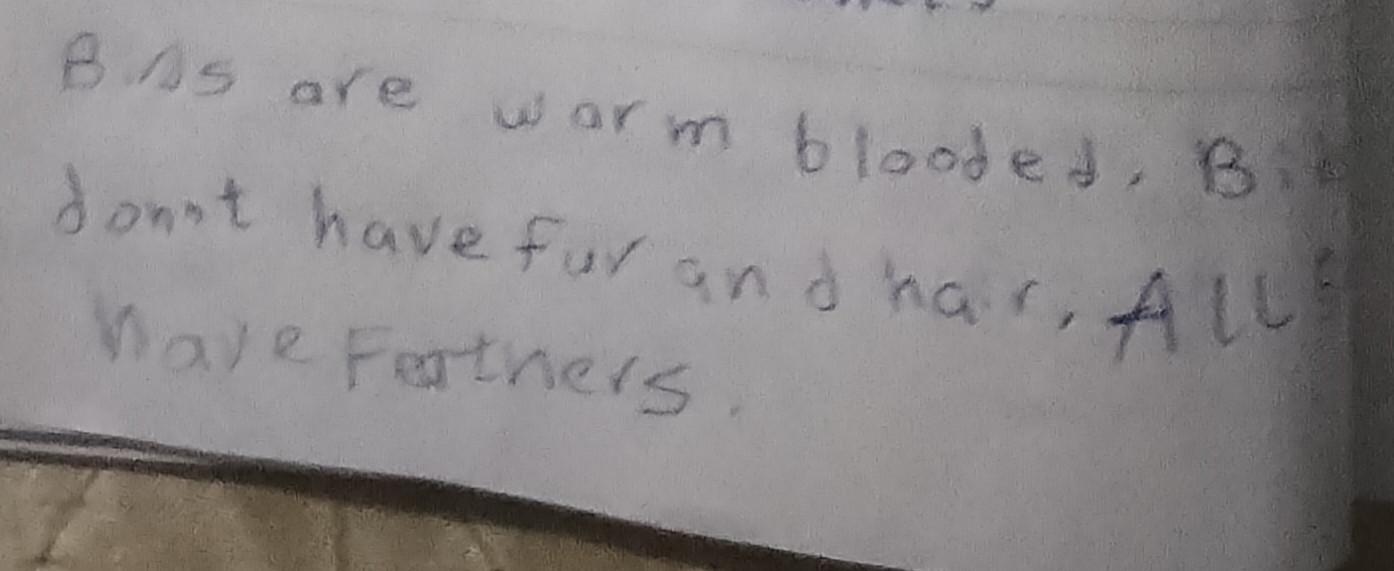 are warm blooded.
don't have fur and hair, All
have Ferthers.